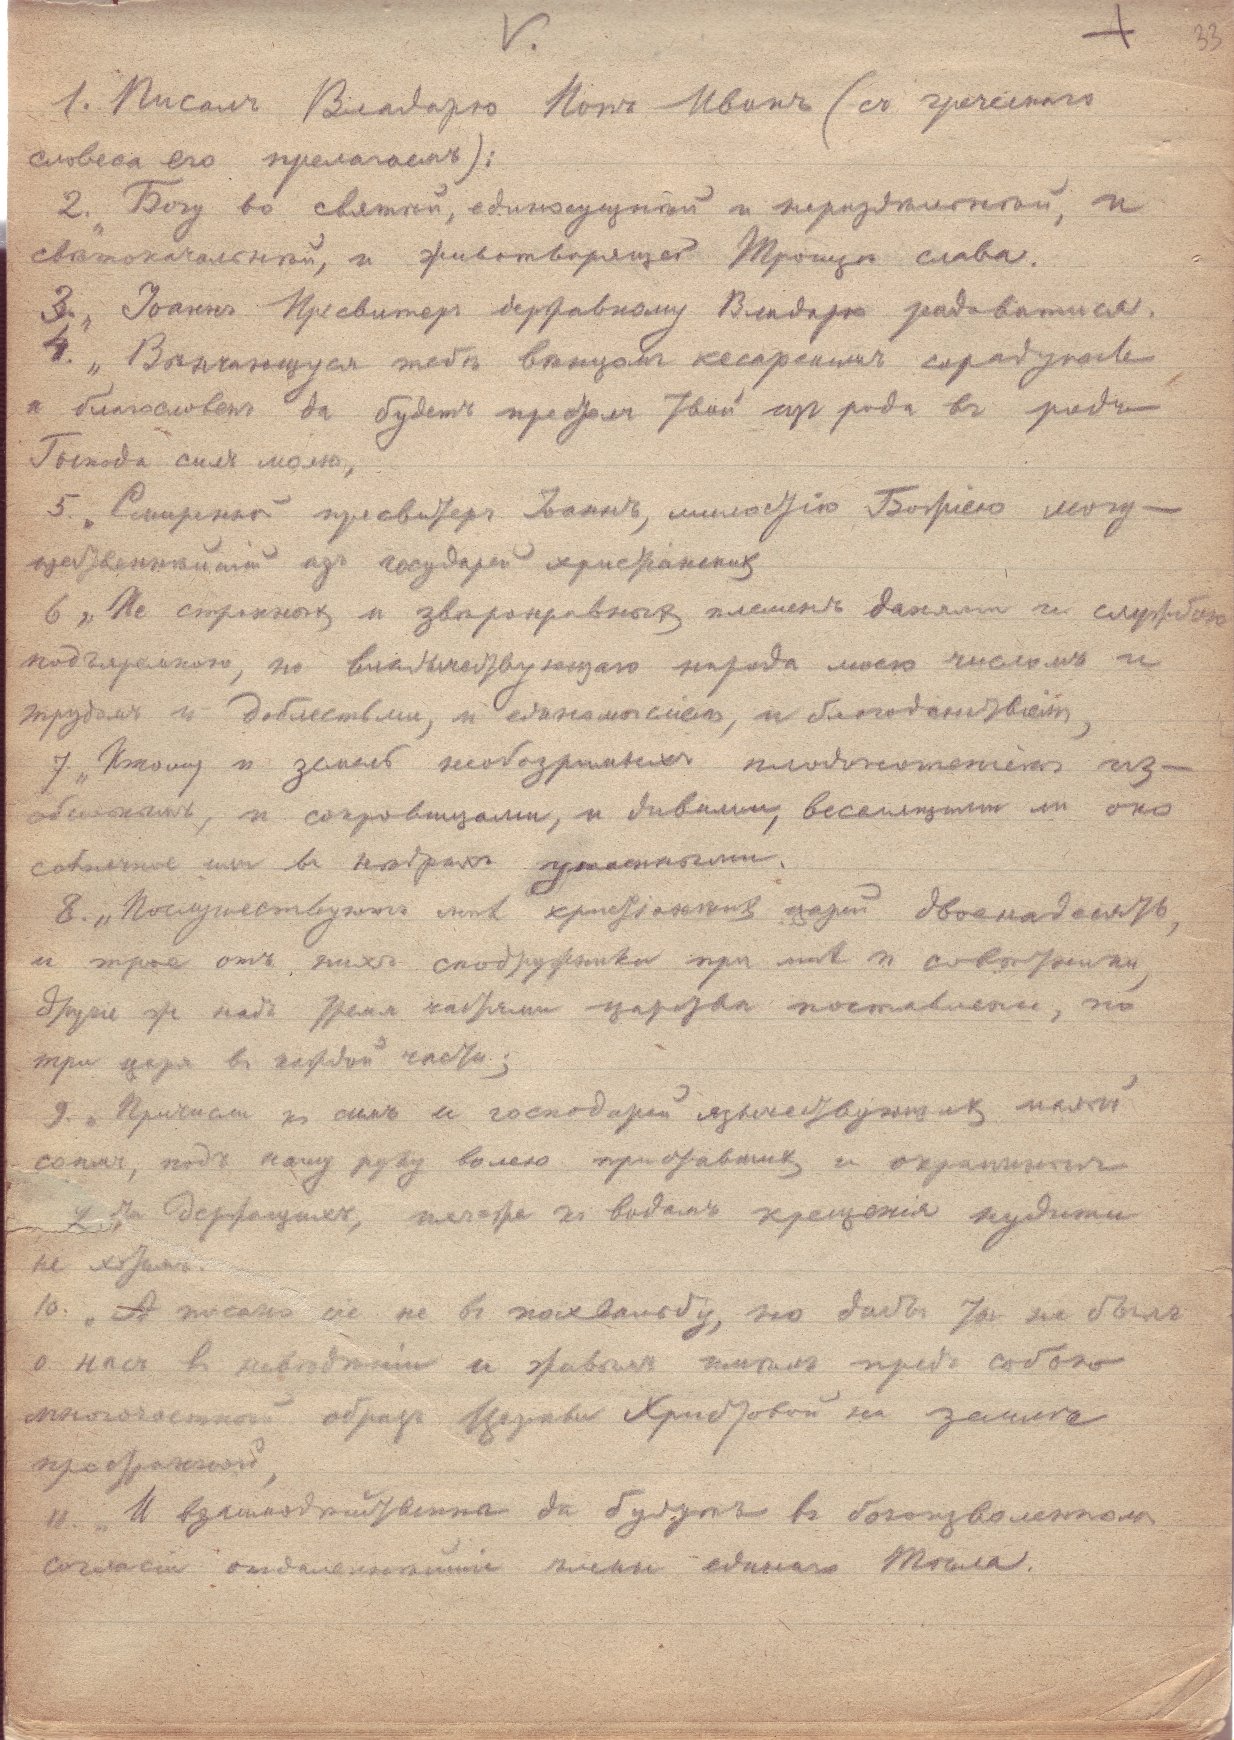 V. + 33
1. Писалъ Владарю Попъ Иванъ (съ греческаго
словеса его прелагаемъ):
2. „Богу во святѣй, единосущнѣй и нераздѣльнѣй, и
свѣтоначальнѣй, и животворящей Троицѣ слава.
3. „Іоаннъ Пресвитеръ державному Владарю радоватися.
4. „Вѣнчающуся тебѣ вѣнцомъ кесарскимъ сорадуюсь
и благословенъ да будетъ престолъ твой изъ рода въ родъ
Господа силъ молю,
5. „Смиренный пресвитеръ Іоаннъ, милостію Божіею могу-
щественнѣйшій изъ государей христіанскихъ
6 „Не странныхъ и звѣронравныхъ племенъ данями и службою
подъяремною, но владычествующаго народа моего числомъ и
трудомъ и доблестьми, и единомысліемъ, и благоденствіемъ,
7 „И земель необозримыхъ плодоношеніемъ из-
обильнымъ, и сокровищами, и дивами, веселящими ли око
солнечное или въ нѣдрахъ утаенными.
8. „Послушествуютъ мнѣ христіанскихъ царей двоенадесять,
и трое отъ нихъ сподружники при мнѣ и совѣтники,
другіе же надъ тремя частями царства поставлены, по
три царя въ каждой части;
9. „Причисли къ симъ и господарей язычествующихъ
сонмъ, подъ нашу руку волею приставшихъ и охраненныхъ
держащихъ, къ водамъ крещенія нудити
не хотимъ.
10. „А писано сіе не въ похвальбу, но дабы ты не былъ
о насъ въ невѣдѣніи и живымъ имѣлъ предъ собою
многочастный образъ Церкви Христовой на землѣ
пространной,
11. „И взаимодѣйственна да будутъ въ богоизволенномъ
согласіи отдаленнѣйшіе члены единаго Тѣла.